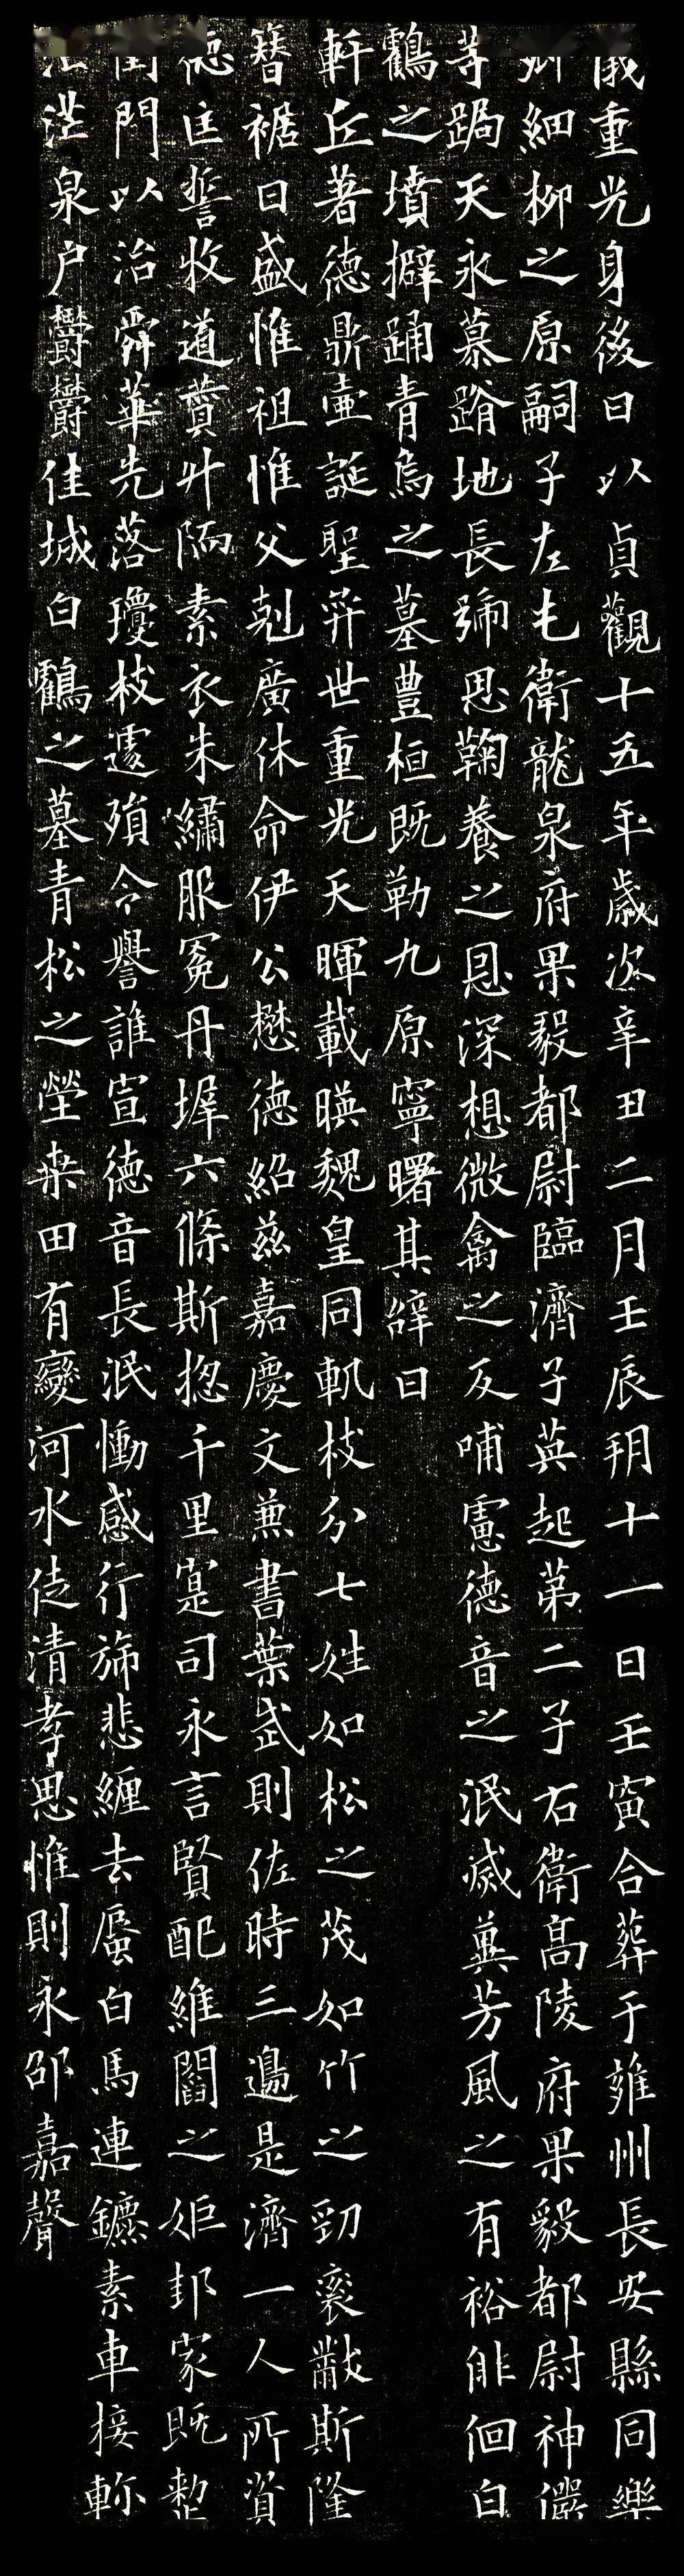 儀重光身後曰以貞觀十五年歲次辛丑二月壬辰朔十一日壬寅合葬于雍州長安縣同樂
鄉細柳之原嗣子左屯衛龍泉府果毅都尉臨濟子英起第二子右衛高陵府果毅都尉神儼
等跼天永慕蹐地長號思鞠養之恩深想微禽之反哺慮德音之泯滅冀芳風之有裕俳佪白
鸖之墳擗踊青烏之墓豐桓既勒九原寧曙其辭曰
軒丘著德鼎壷誕聖弈世重光天暉載暎魏皇同軌枝分七姓如松之茂如竹之勁袞黻斯隆
簪裾日盛惟祖惟父剋廣休命伊公懋德紹兹嘉慶文兼書葉武則佐時三邊是濟一人所資
德匡誓牧道贊升陑素衣朱繡服冕丹墀六條斯揔千里寔司永言賢配維閫之姬邦家既整
閨門以治舜華先落瓊枝遽殞令譽誰宣德音長泯慟感行旆悲纏去蜃白馬連鑣素車接軫
茫泉户欝欝佳城白鸖之墓青松之塋桒田有變河水徒清孝思惟則永邵嘉聲